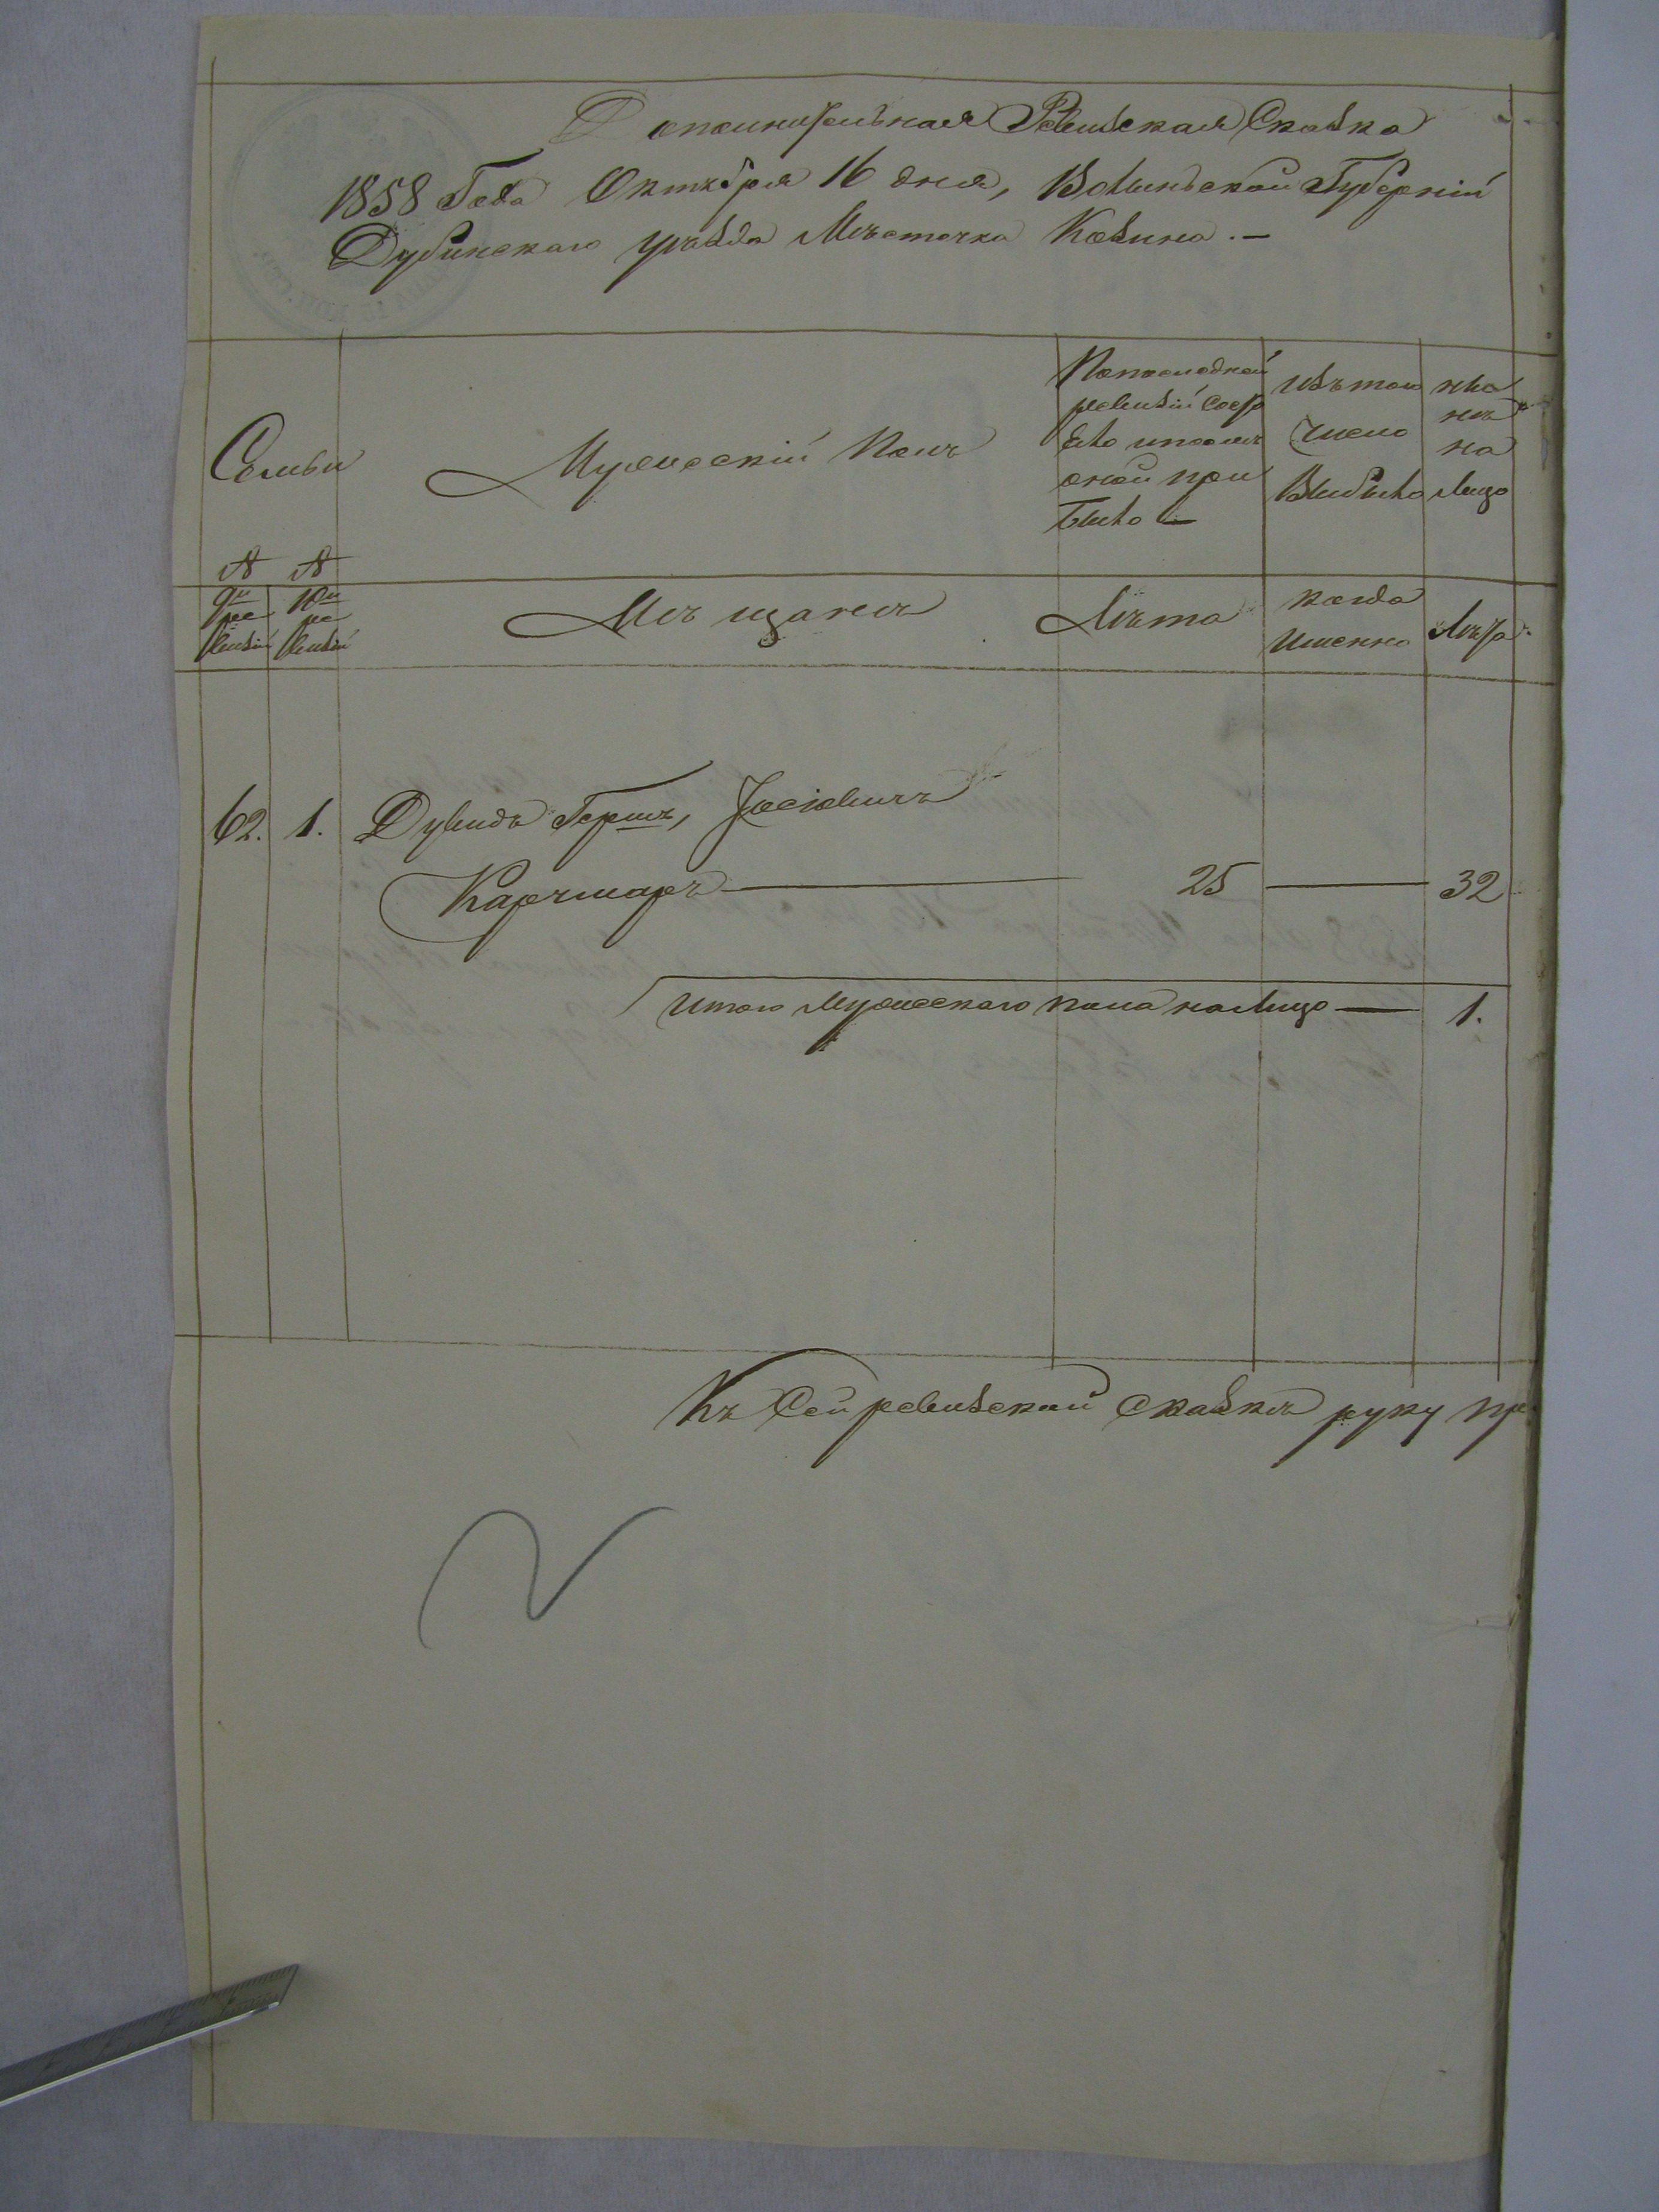 Дополнительная Ревизская Сказка
1858 Года Октября 16 дня, Волынской Губерніи
Дубинскаго уѣзда Мѣстечка Козина. —
Семьи
Мужескій Полъ
По последней
ревизіи состо
яло и после
оной при
было —
Изъ того
Число
Выбыло
ны
нѣ
на
лицо
№ №
9й
ре
визіи
10й
ре
визіи
Мѣщанѣ
Лѣта
когда
именно
Лѣта
62. 1. Дувидъ Гершъ, Іосіовичъ
Карчмаръ — 25 — 32
Итого Мужескаго пола на лицо — 1.
Къ Сей ревизской сказкѣ руку пр